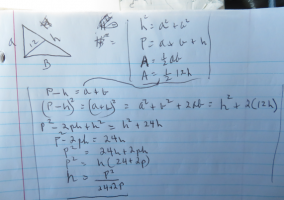 a 12 h
B
h² = a² + b²
P = a + b + h
A = ½ab
A = ½ 12h
P - h = a + b
(P - h)² = (a + b)² = a² + b² + 2ab = h² + 2(12h)
P² - 2ph + h² = h² + 24h
P² - 2ph = 24h
P² = 24h + 2ph
P² = h(24 + 2p)
h = P² / 24+2p